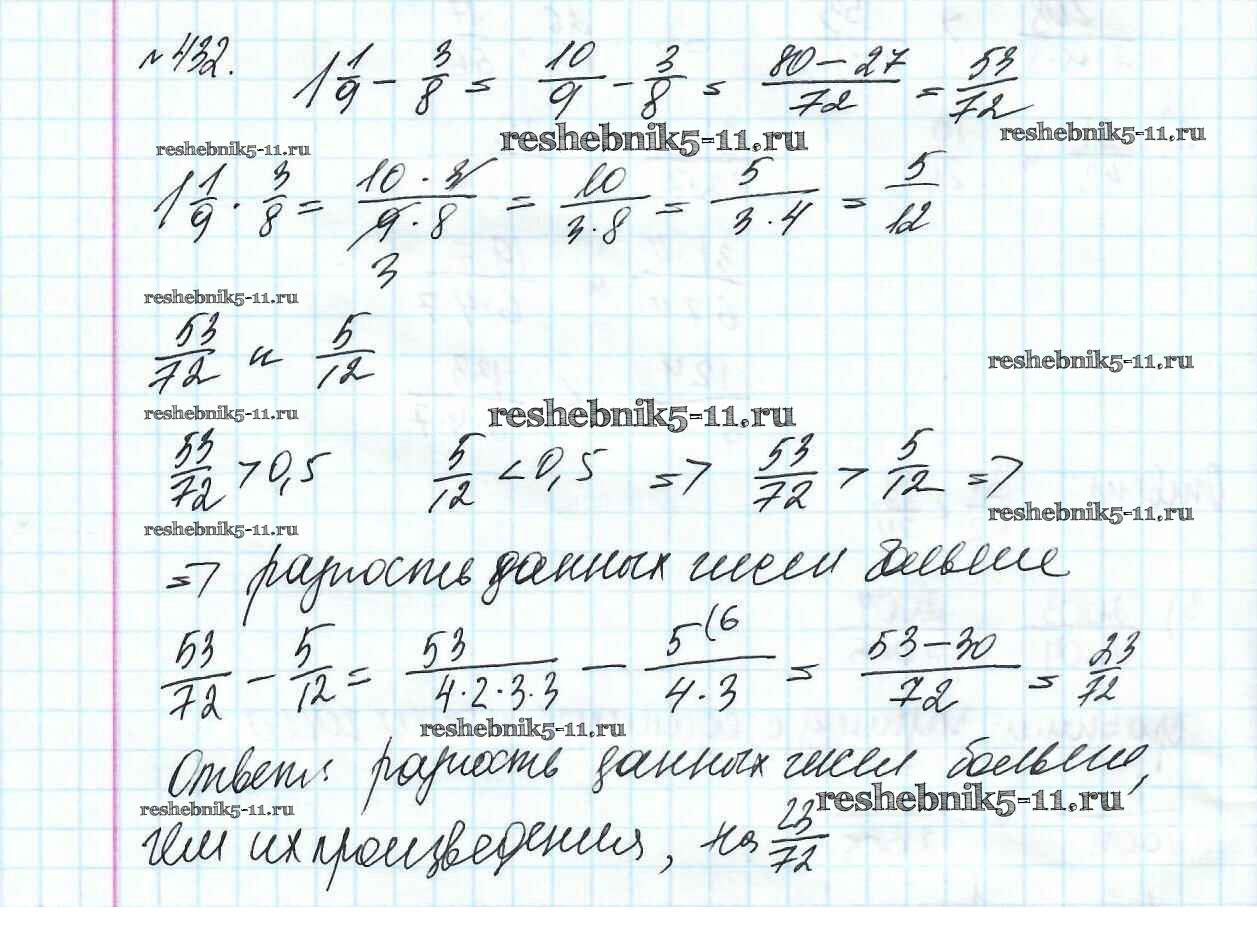 №432. 1 1/9 - 3/8 = 10/9 - 3/8 = (80-27)/72 = 53/72
reshebnik5-11.ru reshebnik5-11.ru reshebnik5-11.ru
1 1/9 · 3/8 = (10 · 3)/(9 · 8) = 10/(3·8) = 5/(3·4) = 5/12
3
reshebnik5-11.ru
53/72 и 5/12
reshebnik5-11.ru
reshebnik5-11.ru reshebnik5-11.ru
53/72 > 0,5 5/12 < 0,5 => 53/72 > 5/12 =>
reshebnik5-11.ru
reshebnik5-11.ru
=> разность данных чисел больше
53/72 - 5/12 = 53/(4·2·3·3) - 5(6/(4·3) = (53-30)/72 = 23/72
reshebnik5-11.ru
Ответ: разность данных чисел больше,
reshebnik5-11.ru reshebnik5-11.ru
чем их произведения, на 23/72